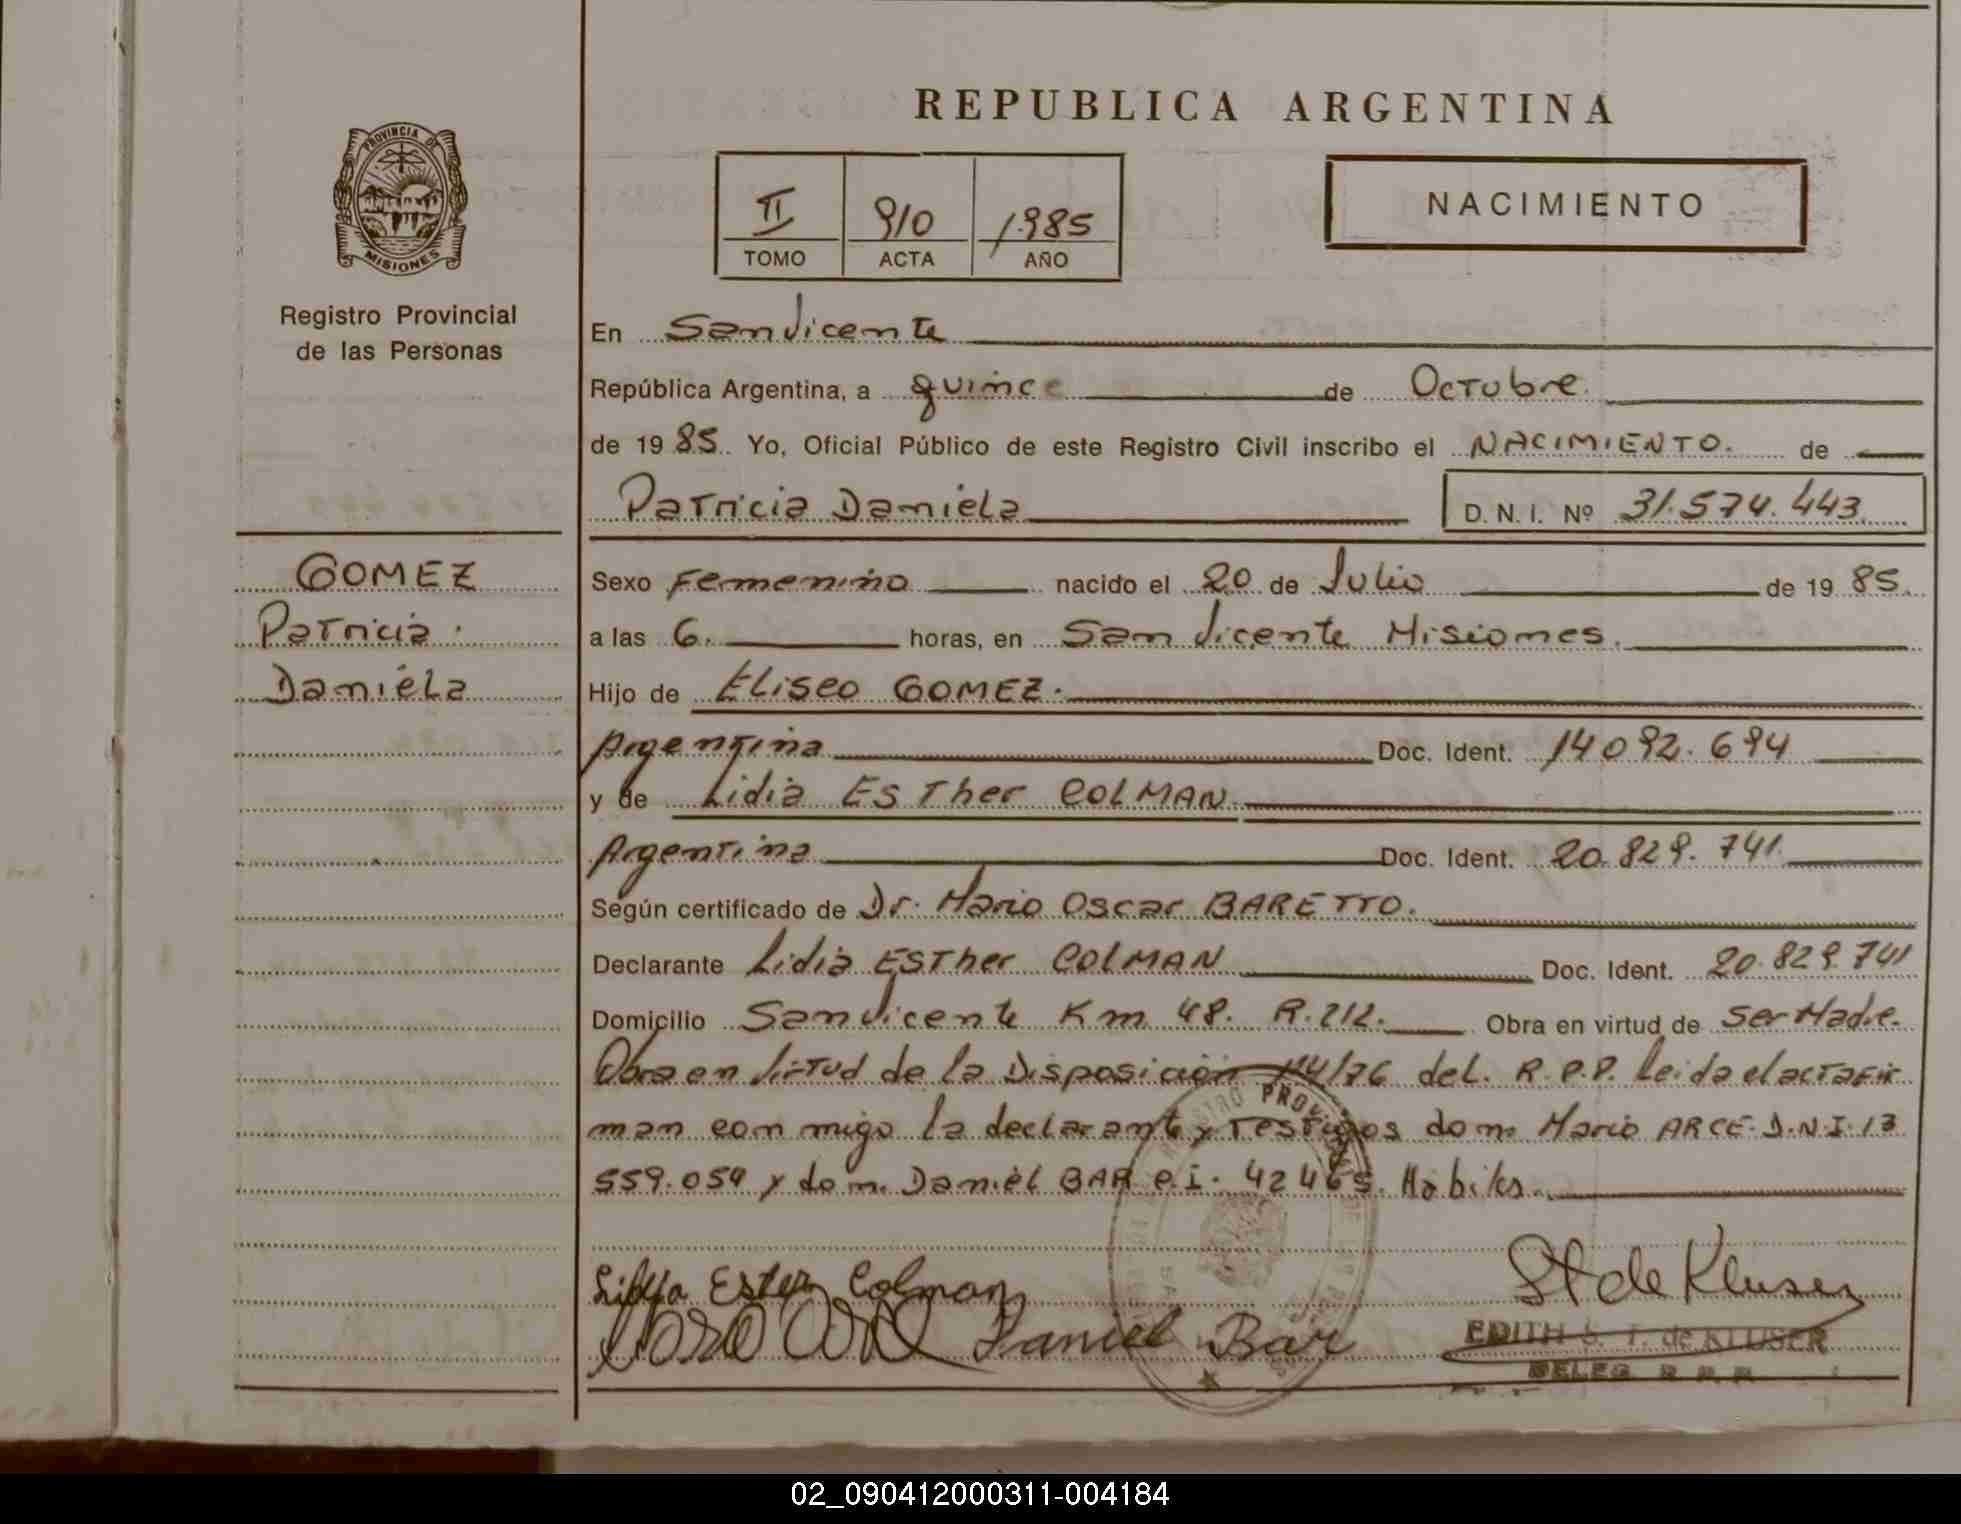 REPUBLICA ARGENTINA
PROVINCIA DE
MISIONES
Registro Provincial
de las Personas
II 910 1985
TOMO ACTA AÑO
NACIMIENTO
En San Vicente
República Argentina, a quince de Octubre
de 1985. Yo, Oficial Público de este Registro Civil inscribo el NACIMIENTO. de
Patricia Daniela D. N. I. Nº 31.574.443
GOMEZ
Patricia
Daniela
Sexo Femenino nacido el 20 de Julio de 1985.
a las 6. horas, en San Vicente Misiones.
Hijo de Eliseo GOMEZ.
Argentina Doc. Ident. 14092.694
y de Lidia EsTher COLMAN
Argentina Doc. Ident. 20.829.741
Según certificado de Dr. Mario Oscar BARETTO.
Declarante Lidia ESTher COLMAN Doc. Ident. 20.829.741
Domicilio San Vicente Km 48. R.212. Obra en virtud de Ser Madre.
Obra en Virtud de la Disposición 114/76 del. R.P.P. Leida el acta fir
man con migo la declarante y Testigos don. Mario ARCE. D.N.I. 13
559.054 y don. Daniel BAR C.I. 42465. Habiles.
Lidia Ester Colman
Daniel Bar
St de Kluser
EDITH S. T. de KLUSER
DELEG. R. P. P.
02_090412000311-004184